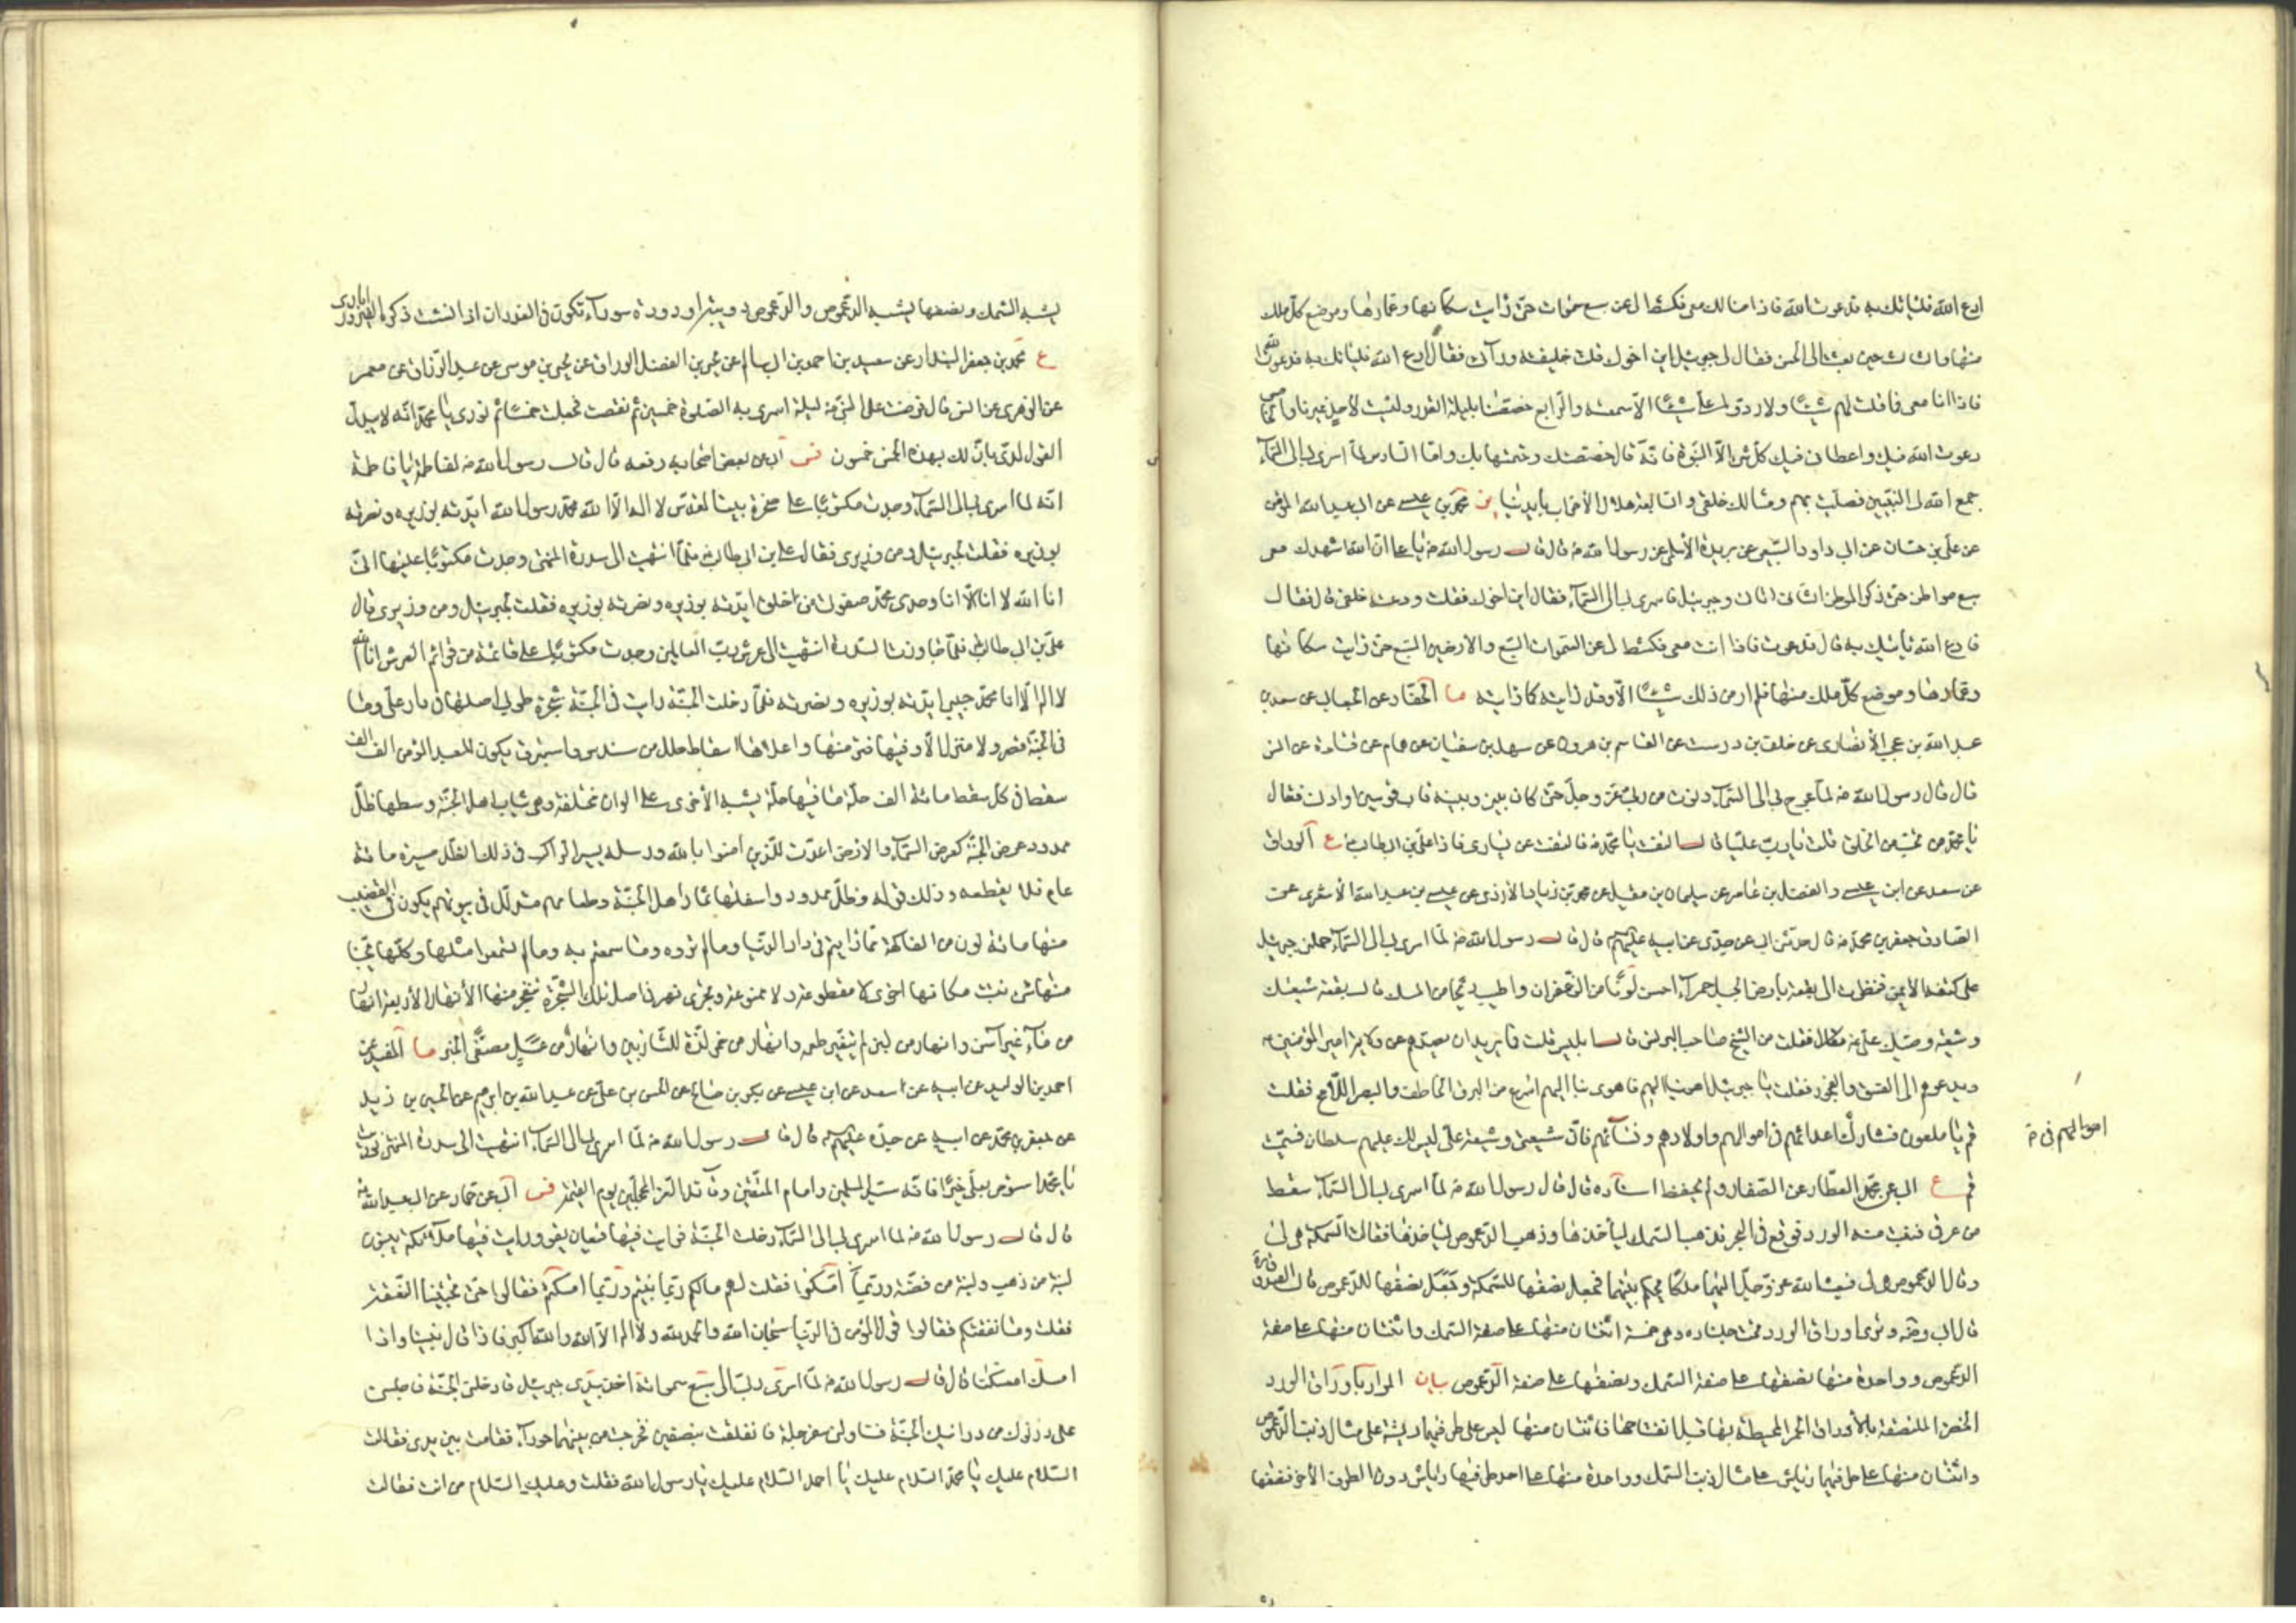 ادع الله فليأتك به فدعوت الله فاذا مثالك معى فكشط لى عن سبع سموات حتى رايت سكانها وعمارها وموضع كل ملك
منها والثالث حين بعثت الى الجن فقال لى جبرئيل اين اخوك قلت خلفته ورائى فقال ادع الله فليأتك به فدعوت الله
فاذا انت معى فما قلت لهم شيئا ولا ردوا على شيئا الا سمعته والرابع خصصنا بليلة القدر وليست لاحد غيرنا والخامس
دعوت الله فيك واعطانى فيك كل شئ الا النبوة فانه قال خصصتك وختمتها بك واما السادس لما اسرى بى الى السماء
جمع الله لى النبيين فصليت بهم ومثالك خلفى والسابع هلاك الاحزاب بايدينا ير محمد بن عيسى عن ابى عبد الله المؤمن
عن على بن حسان عن ابى داود السبيعى عن بريدة الاسلمى عن رسول الله ص قال قال رسول الله ص يا على ان الله اشهدك معى
سبع مواطن حتى ذكر الموطن الثانى اتانى جبرئيل فاسرى بى الى السماء فقال اين اخوك فقلت ودعته خلفى قال فقال
فادع الله ياتيك به قال فدعوت فاذا انت معى فكشط لى عن السموات السبع والارضين السبع حتى رايت سكانها
وعمارها وموضع كل ملك منها فلم ار من ذلك شيئا الا وقد رايته كما رايته ما الحفار عن الجعابى عن سعيد بن
عبد الله بن عجب الانصارى عن خلف بن درست عن القاسم بن هرون عن سهل بن سفيان عن همام عن قتادة عن انس
قال قال رسول الله ص لما عرج بى الى السماء دنوت من ربى عز وجل حتى كان بينى وبينه قاب قوسين او ادنى فقال
يا محمد من تحب من الخلق قلت يا رب عليا قال التفت يا محمد فالتفت عن يسارى فاذا على بن ابى طالب ع ع الوراق
عن سعد عن ابن عيسى والفضل بن عامر عن سليمان بن مقبل عن محمد بن زياد الازدى عن عيسى بن عبد الله الاشعرى عن
الصادق جعفر بن محمد ع قال حدثنى ابى عن جدى عن ابيه عليهم قال قال رسول الله ص لما اسرى بى الى السماء حملنى جبرئيل
على كتفه الايمن فنظرت الى بقعة بارض الجبل حمراء احسن لونا من الزعفران واطيب ريحا من المسك قال بقعة شيعتك
وشيعة وصيك على ع فقلت من الشيخ صاحب البرنس قال ابليس قلت فما يريد ان يصدهم عن ولاية امير المؤمنين ع
ويدعوهم الى الفسق والفجور فقلت يا جبرئيل اهو بنا اليهم فاهوى بنا اليهم اسرع من البرق الخاطف والبصر اللامح فقلت
قم يا ملعون فشارك اعدائهم فى اموالهم واولادهم ونسائهم فان شيعتى وشيعة على ليس لك عليهم سلطان فسميت
اموالهم فى خ
قم ع ابى عن محمد العطار عن الصفار ولم يحفظ اسناده قال قال رسول الله ص لما اسرى بى الى السماء سقط
من عرقى فنبت منه الورد فوقع فى البحر فذهب السمك ليأخذها وذهب الدعموص ليأخذها فقالت السمكة هى لى
وقال الدعموص هى لى فبعث الله عز وجل اليهما ملكا يحكم بينهما فجعل نصفها للسمكة وجعل نصفها للدعموص قال الصدوق
قال ابى وحمه وترى اوراق الورد تحت جلناره وهى خمسة اثنتان منها على صفة السمك واثنتان منها على صفة
الدعموص وواحدة منها نصفها على صفة السمك ونصفها على صفة الدعموص بيان المراد باوراق الورد
الخضر الملتصقة بالاوراق الحمر المحيطة بها قبل انفتاحها فاثنتان منها ليس على طرفيها ريشة على مثال ذنب الدعموص
واثنتان منها على طرفيها رياش على مثال ذنب السمك وواحدة منها على احد طرفيها رياش دون الطرف الاخر فنصفها
يشبه السمك ونصفها يشبه الدعموص والدعموص دويبة او دودة سوداء تكون فى الغدران اذا نشت ذكره الفيروزابادى
ع محمد بن جعفر البندار عن سعيد بن احمد بن ابى سالم عن يحيى بن الفضل الوراق عن يحيى بن موسى عن عبد الرزاق عن معمر
عن الزهرى عن انس قال فرضت على النبى ص ليلة اسرى به الصلوة خمسين ثم نقصت فجعلت خمسا ثم نودى يا محمد انه لا يبدل
القول لدى فان لك بهذه الخمس خمسون فس ابى عن بعض اصحابه رفعه قال قال رسول الله ص لفاطمة يا فاطمة
انه لما اسرى بى الى السماء وجدت مكتوبا على صخرة بيت المقدس لا اله الا الله محمد رسول الله ايدته بوزيره ونصرته
بوزيره فقلت لجبرئيل ومن وزيرى فقال على بن ابى طالب ع فلما انتهيت الى سدرة المنتهى وجدت مكتوبا عليها انى
انا الله لا اله الا انا وحدى محمد صفوتى من خلقى ايدته بوزيره ونصرته بوزيره فقلت لجبرئيل ومن وزيرى قال
على بن ابى طالب فلما جاوزت السدرة انتهيت الى عرش رب العالمين وجدت مكتوبا على قائمة من قوائم العرش انا الله
لا اله الا انا محمد حبيبى ايدته بوزيره ونصرته فلما دخلت الجنة رايت فى الجنة شجرة طوبى اصلها فى دار على وما
فى الجنة قصر ولا منزل الا وفيها فتر منها واعلاها اسفاط حلل من سندس واستبرق يكون للعبد المؤمن الف الف
سفط فى كل سفط مائة الف حلة ما فيها حلة يشبه الاخرى على الوان مختلفة وهى ثياب اهل الجنة وسطها ظل
ممدود عرض الجنة كعرض السماء والارض اعدت للذين امنوا بالله ورسله يسير الراكب فى ذلك الظل مسيرة مائة
عام فلا يقطعه وذلك قوله وظل ممدود واسفلها ثمار اهل الجنة وطعامهم متدلل فى بيوتهم يكون فى القضيب
منها مائة لون من الفاكهة مما رايتم فى دار الدنيا ومما لم تروه وما سمعتم به وما لم تسمعوا مثلها وكلما يجتنى
منها شئ نبتت مكانها اخرى لا مقطوعة ولا ممنوعة ويجرى نهر فى اصل تلك الشجرة تنفجر منها الانهار الاربعة انهار
من ماء غير آسن وانهار من لبن لم يتغير طعمه وانهار من خمر لذة للشاربين وانهار من عسل مصفى الخبر ما المفيد عن
احمد بن الوليد عن ابيه عن سعد عن ابن عيسى عن بكر بن صالح عن الحسن بن على عن عبد الله بن ابرهيم عن الحسين بن زيد
عن جعفر بن محمد عن ابيه عن جده عليهم قال قال رسول الله ص لما اسرى بى الى السماء انتهيت الى سدرة المنتهى نوديت
يا محمد استوص بعلى خيرا فانه سيد المسلمين وامام المتقين وقائد الغر المحجلين يوم القيمة فس ابى عن حماد عن ابى عبد الله ع
قال قال رسول الله ص لما اسرى بى الى السماء دخلت الجنة فرايت فيها قيعان يقق ورايت فيها ملائكة يبنون
لبنة من ذهب ولبنة من فضة وربما امسكوا فقلت لهم مالكم ربما بنيتم وربما امسكتم فقالوا حتى تجيئنا النفقة
فقلت وما نفقتكم فقالوا قول المؤمن فى الدنيا سبحان الله والحمد لله ولا اله الا الله والله اكبر فاذا قال بنينا واذا
امسك امسكنا قال قال رسول الله ص لما اسرى بى ربى الى سبع سمواته اخذ بيدى جبرئيل فادخلنى الجنة فاجلسنى
على درنوك من درانيك الجنة فناولنى سفرجلة فانفلقت بنصفين فخرجت من بينهما حوراء فقامت بين يدى فقالت
السلام عليك يا محمد السلام عليك يا احمد السلام عليك يا رسول الله فقلت وعليك السلام من انت فقالت